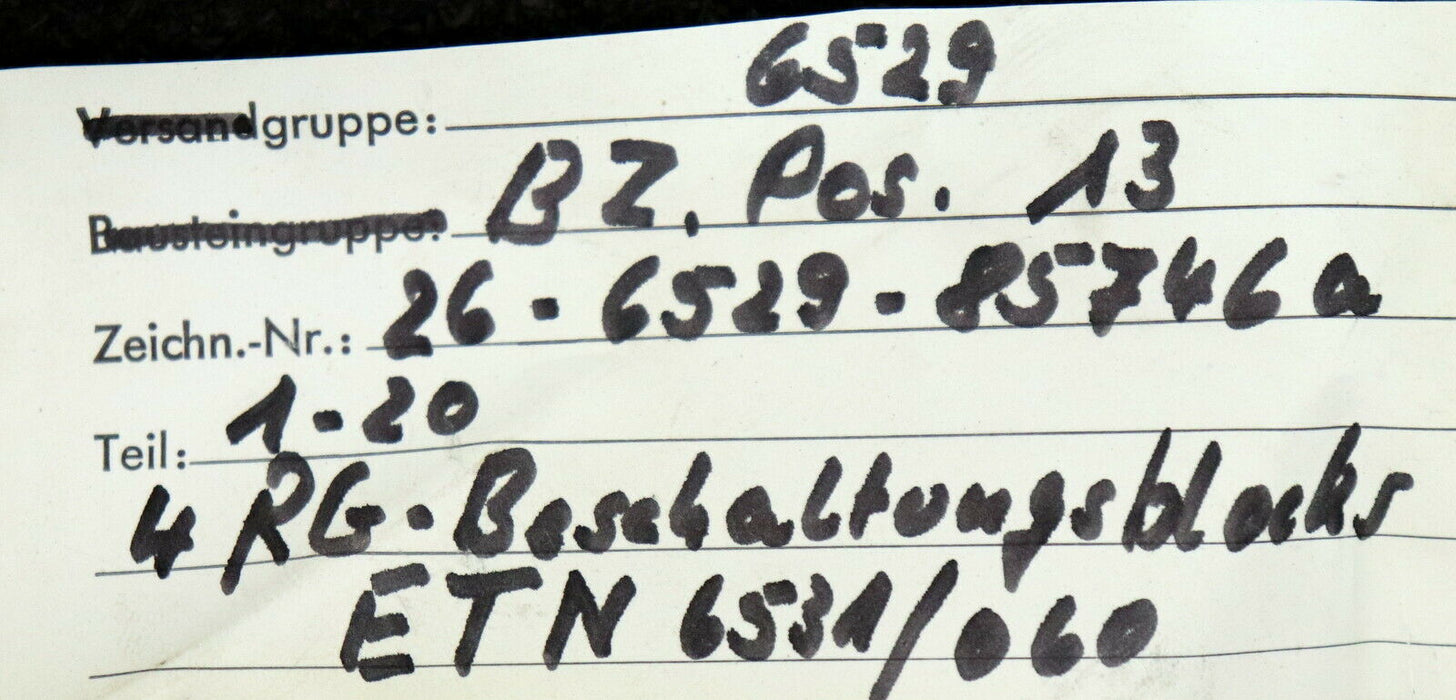 Versandgruppe: 6529
Bausteingruppe: BZ. Pos. 13
Zeichn.-Nr.: 26-6529-85746a
Teil: 1-20
4 RG-Beschaltungsblocks
ETN 6531/060